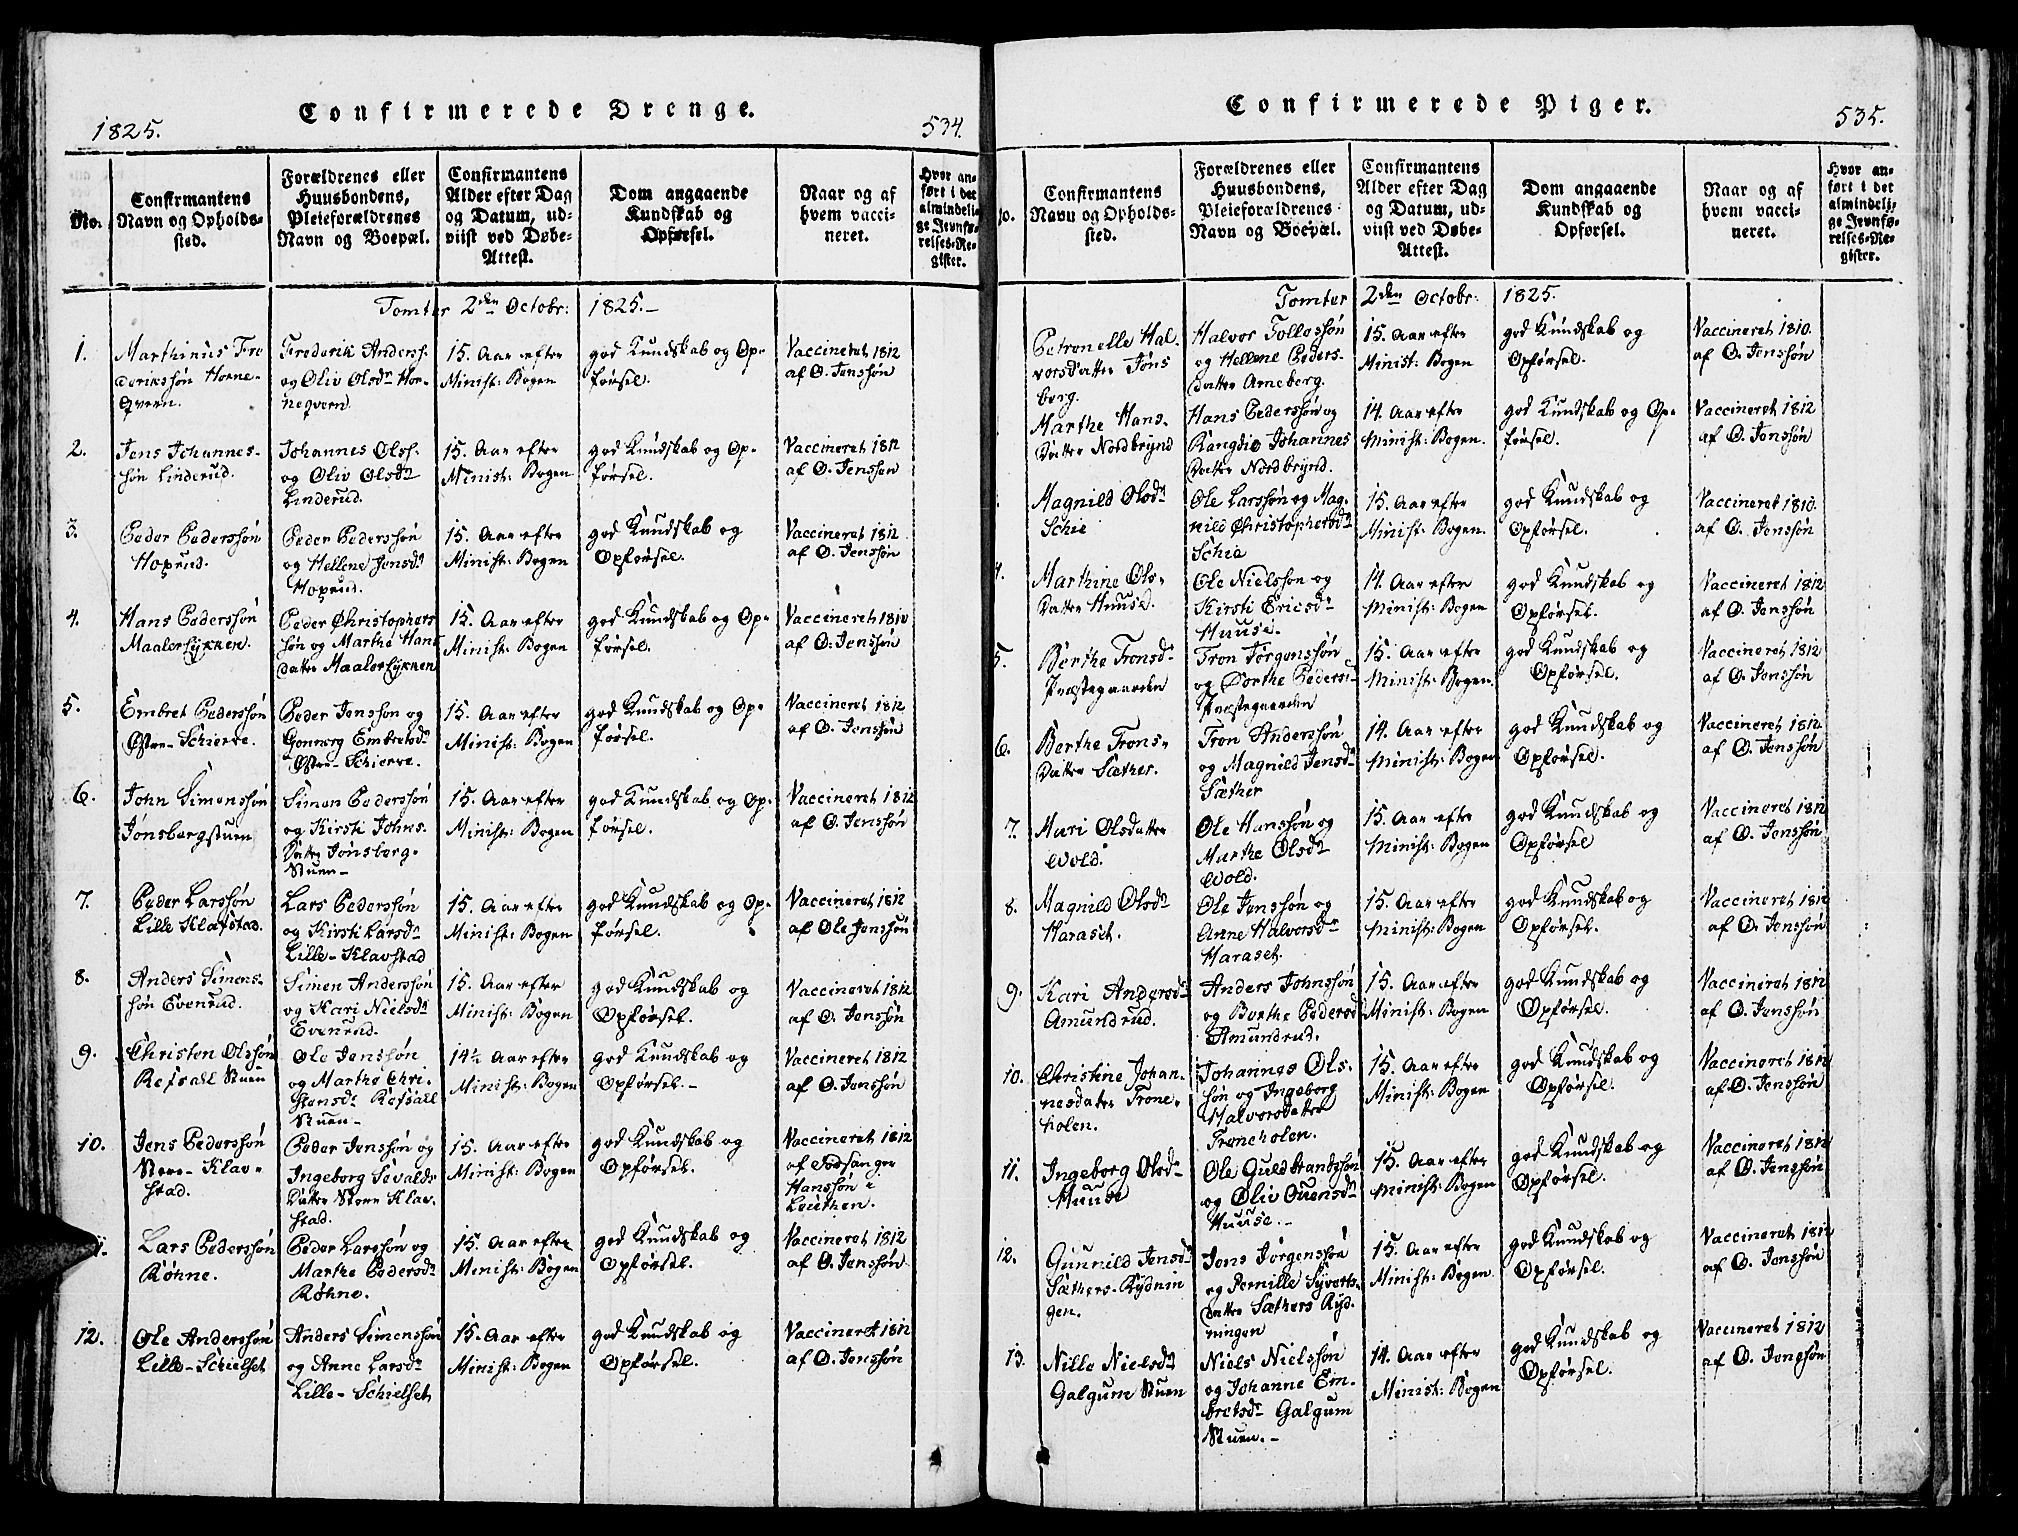 1825.
Confirmerede Drenge.
534.
No.
Confirmantens Navn og Opholds-sted.
Forældrenes eller Huusbondens, Pleieforældrenes Navn og Boepæl.
Confirmantens Alder efter Dag og Datum, ud-viist ved Døbe-Attest.
Dom angaaende Kundskab og Opførsel.
Naar og af hvem vacci-neret.
Hvor an-ført i det almindeli-ge Jevnfø-relses-Re-gister.
Tomter 2den Octobr: 1825.-
1. Marthinus Fre
deriksøn Horne-
qvern.
Frederik Anderss:
og Oliv Olsdr Hor-
neqvern.
15. Aar efter
Minist: Bogen
god Kundskab og Op-
førsel.
Vaccineret 1812
af O. Jenssøn
2. Jens Johannes-
søn Linderud.
Johannes Olss:
og Oliv Olsdr
Linderud.
15. Aar efter
Minist: Bogen
god Kundskab og Op-
førsel.
Vaccineret 1812
af O. Jenssøn
3. Peder Pederssøn
Hoprud.
Peder Pederssøn
og Hellene Jensdr
Hoprud.
15. Aar efter
Minist: Bogen
god Kundskab og
Opførsel.
Vaccineret 1812
af O. Jenssøn
4. Hans Pederssøn
Maalerløkken.
Peder Christophers
søn og Marthe Hans
datter Maalerløkken
15. Aar efter
Minist: Bogen
god Kundskab og Op-
førsel.
Vaccineret 1810
af O. Jenssøn
5. Embret Pederssøn
Østre-Schierve.
Peder Jenssøn og
Gonnorg Embretsdr
Østre-Schierve.
15. Aar efter
Minist: Bogen
god Kundskab og Op-
førsel.
Vaccineret 1812
af O. Jenssøn
6. John Simenssøn
Jønsbergstuen
Simen Pederssøn
og Kirsti Johns-
Datter Jønsberg-
Stuen-
15. Aar efter
Minist: Bogen
god Kundskab og Op-
førsel.
Vaccineret 1812
af O. Jenssøn
7. Peder Larssøn
Lille Klafstad.
Lars Pederssøn
og Kirsti Larsdr
Lille-Klavstad
15. Aar efter
Minist: Bogen
god Kundskab og Op-
førsel.
Vaccineret 1812
af Ole Jenssøn
8. Anders Simens-
søn Evenrud.
Simen Anderssøn
og Kari Nielsdr
Evenrud.
15. Aar efter
Minist: Bogen
god Kundskab og
Opførsel.
Vaccineret 1812
af O. Jenssøn
9. Christen Olssøn
Refsall Stuen
Ole Jenssøn
og Marthe Chri-
stensdr Refsall
Stuen-
14½ Aar efter
Minist: Bogen
god Kundskab og
Opførsel.-
Vaccineret 1812
af O. Jenssøn
10. Jens Pederssøn
Store-Klav-
stad.
Peder Jenssøn og
Ingeborg Sevalds
Datter Store Klav-
stad.
15. Aar efter
Minist: Bogen
god Kundskab og
Opførsel.
Vaccineret 1812
af Forsanger
Hanssøn i
Leuthen.
11. Lars Pederssøn
Røhne.
Peder Larssøn og
Marthe Pedersdr
Røhne.
15. Aar efter
Minist: Bogen
god Kundskab og
Opførsel.
Vaccineret 1812
af O. Jenssøn
12. Ole Anderssøn
Lille-Schielset
Anders Simenssøn
og Anne Larsdr
Lille-Schielset
15. Aar efter
Minist: Bogen
god Kundskab og
Opførsel.
Vaccineret 1812
af O. Jenssøn
Confirmerede Piger.
535.
No.
Confirmantens Navn og Opholds-sted.
Forældrenes eller Huusbondens, Pleieforældrenes Navn og Boepæl.
Confirmantens Alder efter Dag og Datum, ud-viist ved Døbe-Attest.
Dom angaaende Kundskab og Opførsel.
Naar og af hvem vacci-neret.
Hvor an-ført i det almindeli-ge Jevnfø-relses-Re-gister.
Tomter 2den Octobr: 1825.
Petronelle Hal-
vorsdatter Jøns
berg.
Halvor Tollefssøn
og Hellene Peders-
datter Arneberg.
15. Aar efter
Minist: Bogen
god Kundskab og
Opførsel.
Vaccineret 1810.
af O. Jenssøn
Marthe Hans-
datter Nordbrynd
Hans Pederssøn og
Rangdie Johannes
datter Nordbrynd.
14. Aar efter
Minist: Bogen.
god Kundskab og Op-
førsel.
Vaccineret 1812
af O. Jenssøn
Magnild Olsdr
Schie
Ole Larssøn og Mag-
nild Christophersdr
Schie
15. Aar efter
Minist: Bogen.
god Kundskab og
Opførsel.
Vaccineret 1810.
af O. Jenssøn
4. Marthine Ols-
datter Huuse.
Ole Nielssøn og
Kirsti Ericsdr
Huuse.
14. Aar efter
Minist: Bogen
god Kundskab og
Opførsel.
Vaccineret 1812
af O. Jenssøn
5. Berthe Tronsdr
Præstegaarden
Tron Jørgenssøn
og Dorthe Peders:
Præstegaarden
15. Aar efter
Minist: Bogen.
god Kundskab og
Opførsel.
Vaccineret 1812
af O. Jenssøn
6. Berthe Trons-
datter Sæther.
Tron Anderssøn
og Magnild Jensdr
Sæther
14. Aar efter
Minist: Bogen
god Kundskab og
Opførsel.
Vaccineret 1812
af O. Jenssøn
7. Mari Olsdatter
Wold.
Ole Hanssøn og
Marthe Olsdr
Wold.
15. Aar efter
Minist: Bogen
god Kundskab og
Opførsel
Vaccineret 1812
af O. Jenssøn
8. Magnild Olsdr
Haraset.
Ole Jenssøn og
Anne Halvorsdr
Haraset.
15. Aar efter
Minist: Bogen
god Kundskab og
Opførsel.
Vaccineret 1812
af O. Jenssøn
9. Kari Andersdr
Amundrud.
Anders Johnssøn
og Berthe Pedersd
Amundrud.
15. Aar efter
Minist: Bogen
god Kundskab og
Opførsel.
Vaccineret 1812
af O. Jenssøn
10. Christine Johan-
nesdatter Trone-
holen.
Johannes Ols
søn og Ingeborg
Halvorsdatter
Troneholen.
15. Aar efter
Minist: Bogen
god Kundskab og
Opførsel.
Vaccineret 1812
af O. Jenssøn
11. Ingeborg Olsdr
Huuse
Ole Guldbrandssøn
og Oliv Ouensdr
Huuse.-
15. Aar efter
Minist: Bogen
god Kundskab og
Opførsel.
Vaccineret 1812
af O. Jenssøn
12. Gunnild Jensdr
Sæthers-Rydnin
gen.
Jens Jørgenssøn
og Pernille Syverts-
datter Sæthers Ryd-
ningen
15. Aar efter
Minist: Bogen
god Kundskab og
Opførsel.
Vaccineret 1812
af O. Jenssøn
13. Nille Nielsdr
Galgum Stuen
Niels Nielssøn
og Johanne Em-
bretsdr Galgum
Stuen.-
14. Aar efter
Minist: Bogen
god Kundskab og
Opførsel.
Vaccineret 1812
af O. Jenssøn